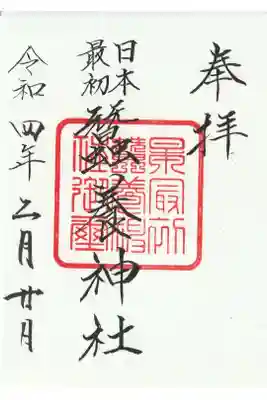 奉拝
日本
最初
蠶養神社
令和四年二月廿日